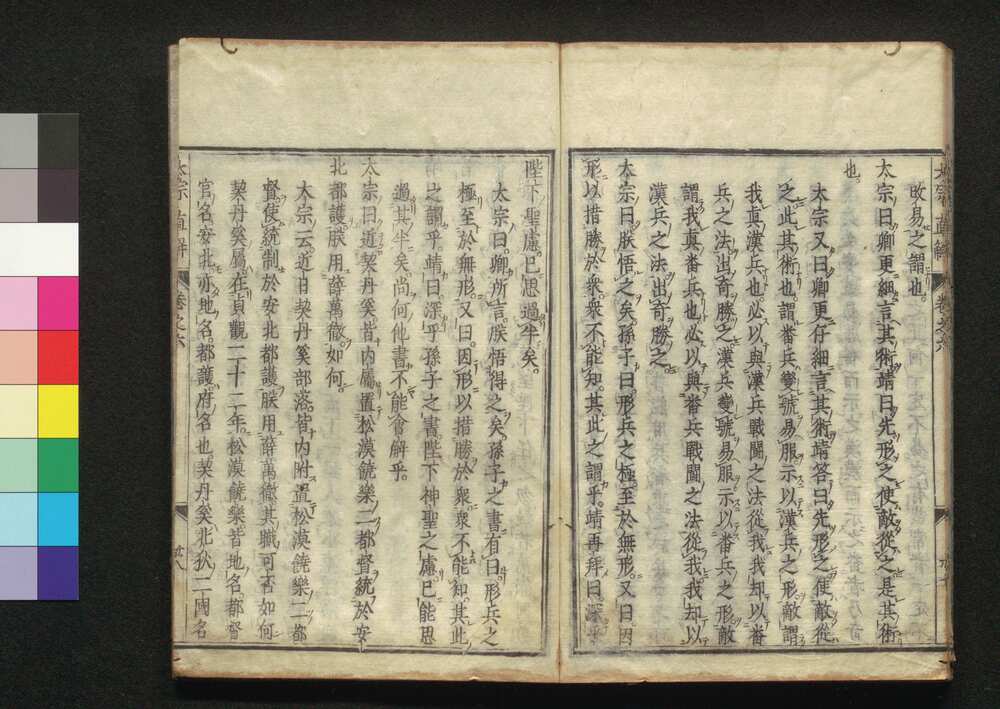 故易之謂也
太宗曰卿更細言其術靖曰先形之使敵從之是其術
也
太宗又曰卿更仔細言其術靖荅曰先形之使敵從
之此其術也謂畨兵變號易服示以漢兵之形敵謂
我真漢兵也必以與漢兵戰鬪之法從我我却以畨
兵之法出奇勝之漢兵變號易服示以畨兵之形敵
謂我真畨兵也必以與畨兵戰鬪之法從我我却以
漢兵之法出奇勝之
太宗曰朕悟之矣孫子曰形兵之極至於無形又曰因
形以措勝於衆衆不能知其此之謂乎靖再拜曰深乎
陛下聖慮已思過半矣
太宗曰卿所言朕悟得之矣孫子之書有曰形兵之
極至於無形又曰因形以措勝於衆衆不能知其此
之謂乎靖曰深乎孫子之書陛下神聖之慮已能思
過其半矣尚何他書不能會解乎
太宗曰近契丹奚皆内屬置松漠饒樂二都督統於安
北都護朕用薛萬徹如何
太宗云近日契丹奚部落皆内附置松漠饒樂二都
督使統制於安北都護朕用薛萬徹其職可否如何
契丹奚屬在貞觀二十二年松漠饒樂皆地名都督
官名安北亦地名都護府名也契丹奚北狄二國名